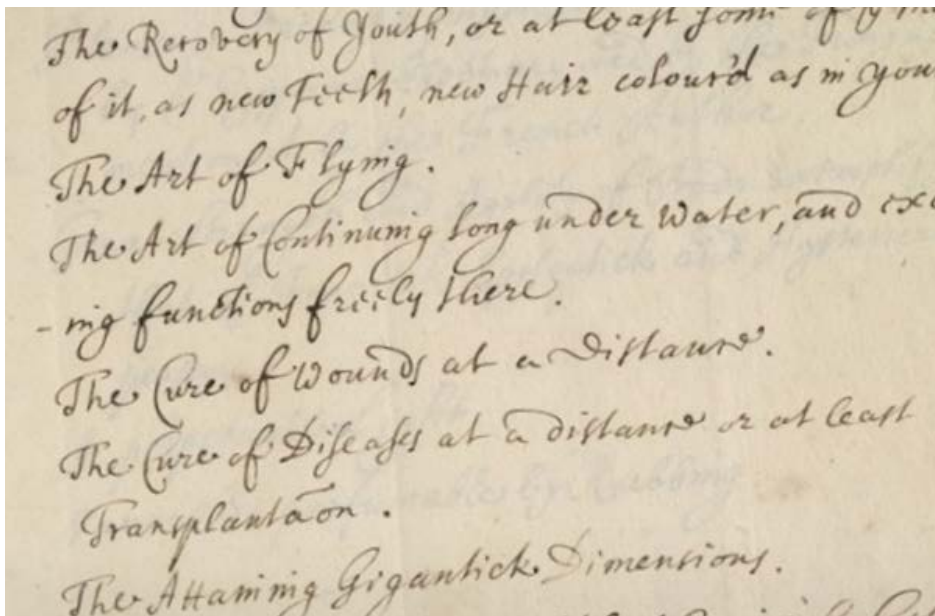 The Recovery of Youth, or at least some of
of it, as new Teeth, new Hair colour'd as in you
The Art of Flying.
The Art of Continuing long under water, and exe
-ing functions freely there.
The Cure of Wounds at a Distance.
The Cure of Diseases at a distance or at least
Transplantaōn.
The Attaining Gigantick Dimensions.